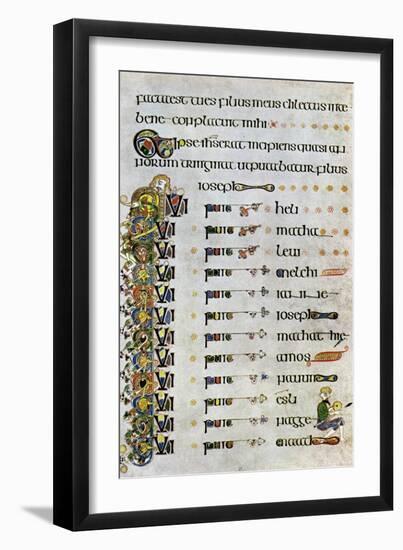 facta est tu es filius meus dilectus in te
bene conplacuit mihi
Et ipse ihs erat incipiens quasi an
norum triginta ut putabatur filius
ioseph
QUI fuit heli
UI fuit matha
UI fuit levi
UI fuit melchi
UI fuit
UI fuit ioseph
UI fuit mathathie
UI fuit amos
UI fuit nauum
UI fuit esli
UI fuit nagge
UI fuit maath